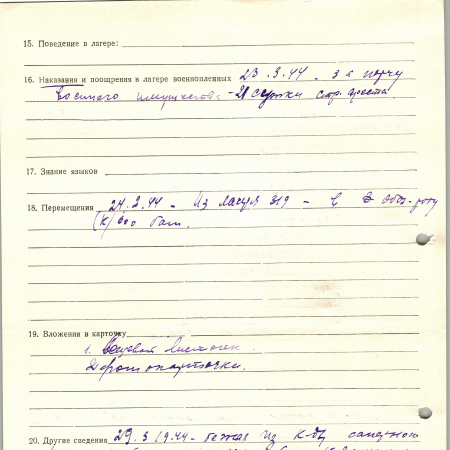 15. Поведение в лагере:
16. Наказания и поощрения в лагере военнопленных 23.3.44 - за порчу
военного имущества - 21 сутки стр. ареста.
17. Знание языков
18. Перемещения 24.2.44 - Из лагеря 319 - в
бат.
19. Вложения в карточку
1. листочек.
2 фотокарточки.
20. Другие сведения 29.3 1944 - бежал из